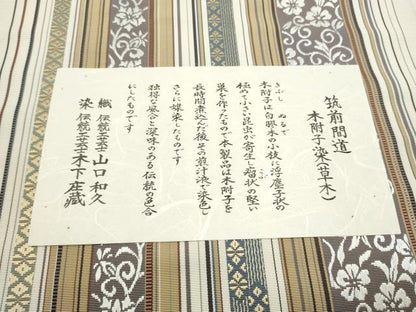 筑前間道
木附子染(草木)
きぶし ぬるで
木附子は白膠木の小枝に浮塵子状の
極めて小さい昆虫が寄生し瘤状の堅い
巣を作ったもので本製品は木附子を
長時間煮込んだ後その煎汁液で染色し
さらに媒染したものです
独得な風合と深味のある伝統の色合
にしたものです
織 伝統工芸士 山口和久
染 伝統工芸士 木下庄蔵